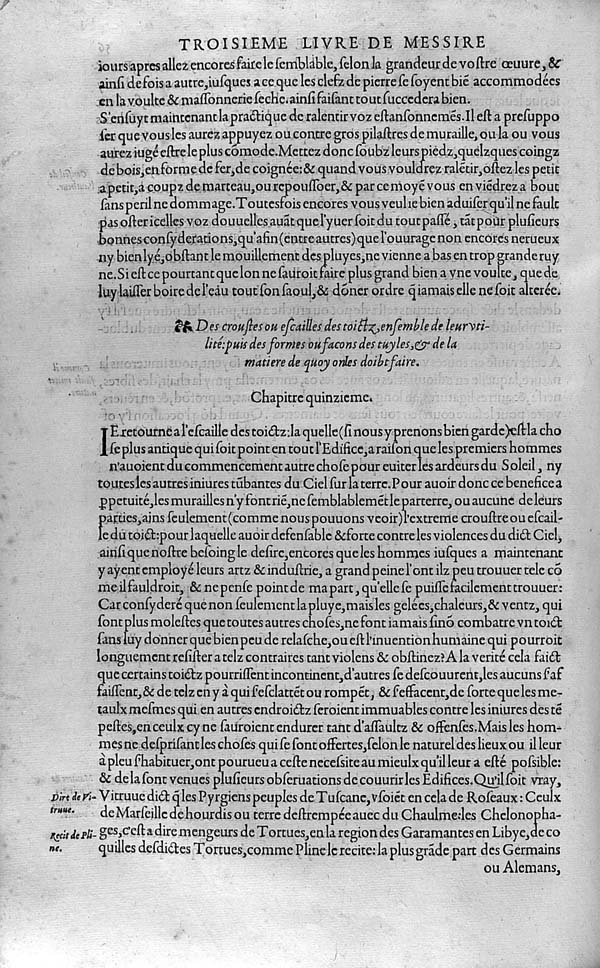 TROISIEME LIVRE DE MESSIRE
iours apres allez encores faire le semblable, selon la grandeur de vostre œuure, &
ainsi de fois a autre, iusques a ce que les clefz de pierre se soyent biẽ accommodées
en la voulte & massonnerie seche. ainsi faisant tout succedera bien.
S'ensuyt maintenant la practique de ralentir voz estansonnemẽs. Il est a presuppo
ser que vous les aurez appuyez ou contre gros pilastres de muraille, ou la ou vous
aurez iugé estre le plus cõmode. Mettez donc soubz leurs piedz, quelzques coingz
de bois, en forme de fer, de coignée: & quand vous vouldrez ralẽtir, ostez les petit
a petit, a coupz de marteau, ou repoussoer, & par ce moyẽ vous en viẽdrez a bout
sans peril ne dommage. Toutesfois encores vous veulie bien aduiser qu'il ne fault
pas oster icelles voz douuelles auãt que l'yuer soit du tout passé, tãt pour plusieurs
bonnes consyderations, qu'afin (entre autres) que l'ouurage non encores nerueux
ny bien lyé, obstant le mouillement des pluyes, ne vienne a bas en trop grande ruy
ne. Si est ce pourtant que lon ne sauroit faire plus grand bien a vne voulte, que de
luy laisser boire de l'eau tout son saoul, & dõner ordre q̃ iamais elle ne soit alterée.
Des croustes ou escailles des toictz, ensemble de leur vti-
lité: puis des formes ou facons des tuyles, & de la
matiere de quoy on les doibt faire.
Chapitre quinzieme.
IE retourne a l'escaille des toictz: la quelle (si nous y prenons bien garde) est la cho
se plus antique qui soit point en tout l'Edifice, a raison que les premiers hommes
n'auoient du commencement autre chose pour euiter les ardeurs du Soleil, ny
toutes les autres iniures tũbantes du Ciel sur la terre. Pour auoir donc ce benefice a
ppetuité, les murailles n'y font riẽ, ne semblablemẽt le parterre, ou aucune de leurs
parties, ains seulement (comme nous pouuons veoir) l'extreme croustre ou escail-
le du toict: pour laquelle auoir defensable & forte contre les violences du dict Ciel,
ainsi que nostre besoing le desire, encores que les hommes iusques a maintenant
y ayent employé leurs artz & industrie, a grand peine l'ont ilz peu trouuer tele cõ
me il fauldroit, & ne pense point de ma part, qu'elle se puisse facilement trouuer:
Car consyderé que non seulement la pluye, mais les gelées, chaleurs, & ventz, qui
sont plus molestes que toutes autres choses, ne font iamais sinõ combatre vn toict
sans luy donner que bien peu de relasche, ou est l'inuention humaine qui pourroit
longuement resister a telz contraires tant violens & obstinez? A la verité cela faict
que certains toictz pourrissent incontinent, d'autres se descouurent, les aucuns s'af
faissent, & de telz en y à qui s'esclattẽt ou rompẽt, & s'effacent, de sorte que les me-
taulx mesmes qui en autres endroictz seroient immuables contre les iniures des tẽ
pestes, en ceulx cy ne sauroient endurer tant d'assaultz & offenses. Mais les hom-
mes ne desprisant les choses qui se sont offertes, selon le naturel des lieux ou il leur
à pleu s'habituer, ont pourueu a ceste necessite au mieulx qu'il leur a esté possible:
& de la sont venues plusieurs obseruations de couurir les Edifices. Qu'il soit vray,
Dire de Vi-
truue.
Vitruue dict q̃ les Pyrgiens peuples de Tuscane, vsoiẽt en cela de Roseaux: Ceulx
de Marseille de hourdis ou terre destrempée auec du Chaulme: les Chelonopha-
Recit de Pli-
ne.
ges, c'est a dire mengeurs de Tortues, en la region des Garamantes en Libye, de co
quilles desdictes Tortues, comme Pline le recite: la plus grãde part des Germains
ou Alemans,